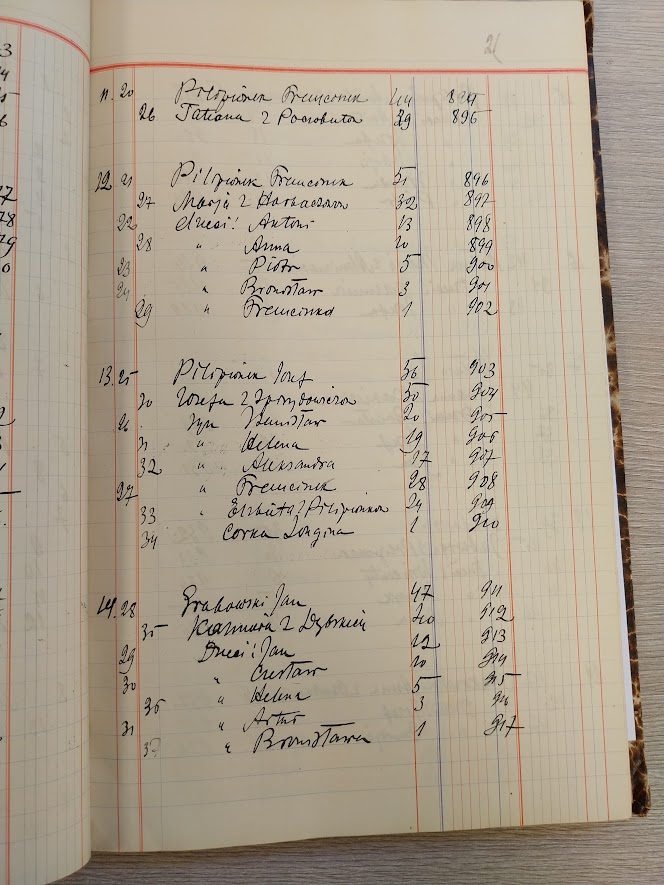 21
11. 20 Pilipionek Franciszek 44 894
26 Tatiana z 29 896
12 21 Pilipionek Franciszek 51 896
27 Marja z 32 897
22 dzieci: Antoni 13 898
28 " Anna 10 899
23 " Piotr 5 900
24 " Bronisław 3 901
29 " Franciszka 1 902
13. 25 Pilipionek Józef 56 903
30 Józefa z 50 904
26 Syn Stanisław 20 905
31 " Helena 19 906
32 " Aleksandra 17 907
27 " Franciszek 28 908
33 " Elżbieta z Pilipionków 24 909
34 Córka Longina 1 910
14. 28 Grabowski Jan 47 911
35 Kazimiera z 40 912
29 Dzieci: Jan 12 913
30 " Czesław 10 914
36 " Helena 5 915
31 " Artur 3 916
37 " Bronisława 1 917